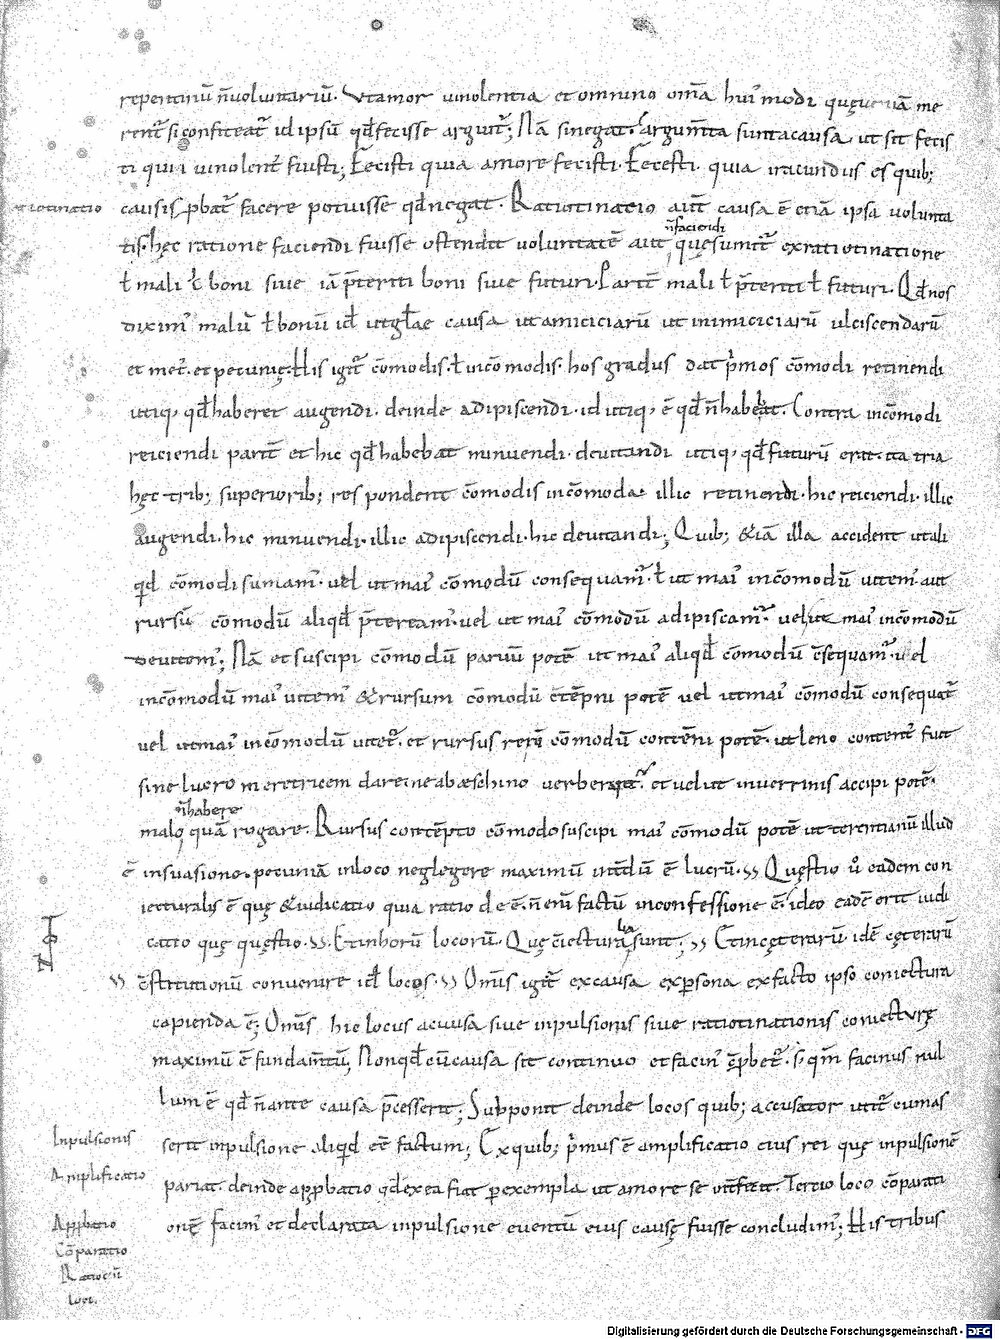 repentinū n̄ voluntariū. Ut amor uinolentia et omnino om̄a hui᾽modi quę ueniā me
rent᷑ si confiteat᷑ id ipsū qd̄ fecisse arguit᷑; Nā si negat. argum̄ta sunt a causa, ut sit fecis
ti quia uinolent᷑ fuisti; Fecisti quia amore fecisti. Fecisti quia iracundus es quib;
causis p̱bat᷑ facere potuisse qd̄ negat. Ratiotinatio aut̄ causa ē etiā ipsa volunta
ratiotinatio
tis. hęc ratione faciendi fuisse ostendit voluntatē aut n̄ faciendi quę sumit᷑ ex ratiotinatione
ł mali ł boni siue iā p̄teriti boni siue futuri. Parit᷑ mali ł p̄teriti ł futuri. Qd̄ nos
diximᷣ malū ł bonū id ut glae causa ut amiciciarū ut inimiciciarū ulciscendarū
et met᷑. et pecunię. His igit᷑ cōmodis. ł incōmodis. hos gradus dat p̄mos cōmodi retinendi
utiq, qd̄ haberet augendi. deinde adipiscendi. id utiq, ē qd̄ n̄ habeat. Contra incōmodi
reiciendi parit᷑ et hic qd̄ habebat minuendi. deuitandi utiq, qd̄ futurū erat. ita tria
hęc trib; superiorib; respondent cōmodis incōmoda. illic retinendi. hic reiciendi. illic
augendi. hic minuendi. illic adipiscendi. hic deuitandi; Quib; &iā illa accident ut ali
qd̄ cōmodi sumam᷑. uel ut mai᾽ cōmodū consequam᷑. ł ut mai᾽ incōmodū uitem᷑. aut
rursū cōmodū aliqd̄ p̄tereamᷣ. uel ut mai᾽ cōmodū adipiscam᷑. uel ut mai᾽ incōmodū
deuitemᷣ; Nā et suscipi cōmodū paruū potē ut mai᾽ aliqd̄ cōmodū c̄sequam᷑. uel
incōmodū mai᾽ uitemᷣ & rursum cōmodū c̄tēpni potē uel ut mai᾽ cōmodū consequat᷑
uel ut mai᾽ incōmodū uitet᷑. et rursus cōmodū contēni potē. ut leno content᷑ fuit
sine lucro meretricem dare. ne ab æschino verberaret᷑. et uel ut in uerrinis accipi potē.
malo n̄ habere quā rogare. Rursus contēpto cōmodo suscipi mai᾽ cōmodū potē ut terentianū illud
ē in suasione. pecuniā in loco neglegere maximū int̄dū ē lucrū. Quęstio u᷑ eadem con
iecturalis ē quę & iudicatio quia ratio deē. n̄ enī factū in confessione ē. ideo eadē erit iudi
catio quę quęstio. Et in horū locorū. Quę c̄iecturalia sunt; Et in cęterarū. idē cęterarū
c̄stitutionū conuenire id locos. Omīs igit᷑ ex causa ex p̱sona ex facto ipso coniectura
capienda ē; Omīs hic locus a causa siue inpulsionis siue ratiotinationis coniecturę
maximū ē fundam̄tū, Non qd̄ cū causa sit continuo et facinᷣ p̱bet᷑. s; qm̄ facinus nul
lum ē qd̄ n̄ ante causa p̄cesserit; Supponit deinde locos quib; accusator utit᷑ cum as
serit inpulsione aliqd̄ eē factum; Ex quib; p̄mus ē amplificatio eius rei quę inpulsionē
pariat. deinde app̱batio qd̄ ex ea fiat p̱ exempla ut amore se Tertio loco cōparati
onę facinᷣ et declarata inpulsione euentū eius causę fuisse concludimᷣ; His tribus
Inpulsionis
Amplificatio
App̱batio
Cōparatio
loci.
Digitalisierung gefördert durch die Deutsche Forschungsgemeinschaft - DFG